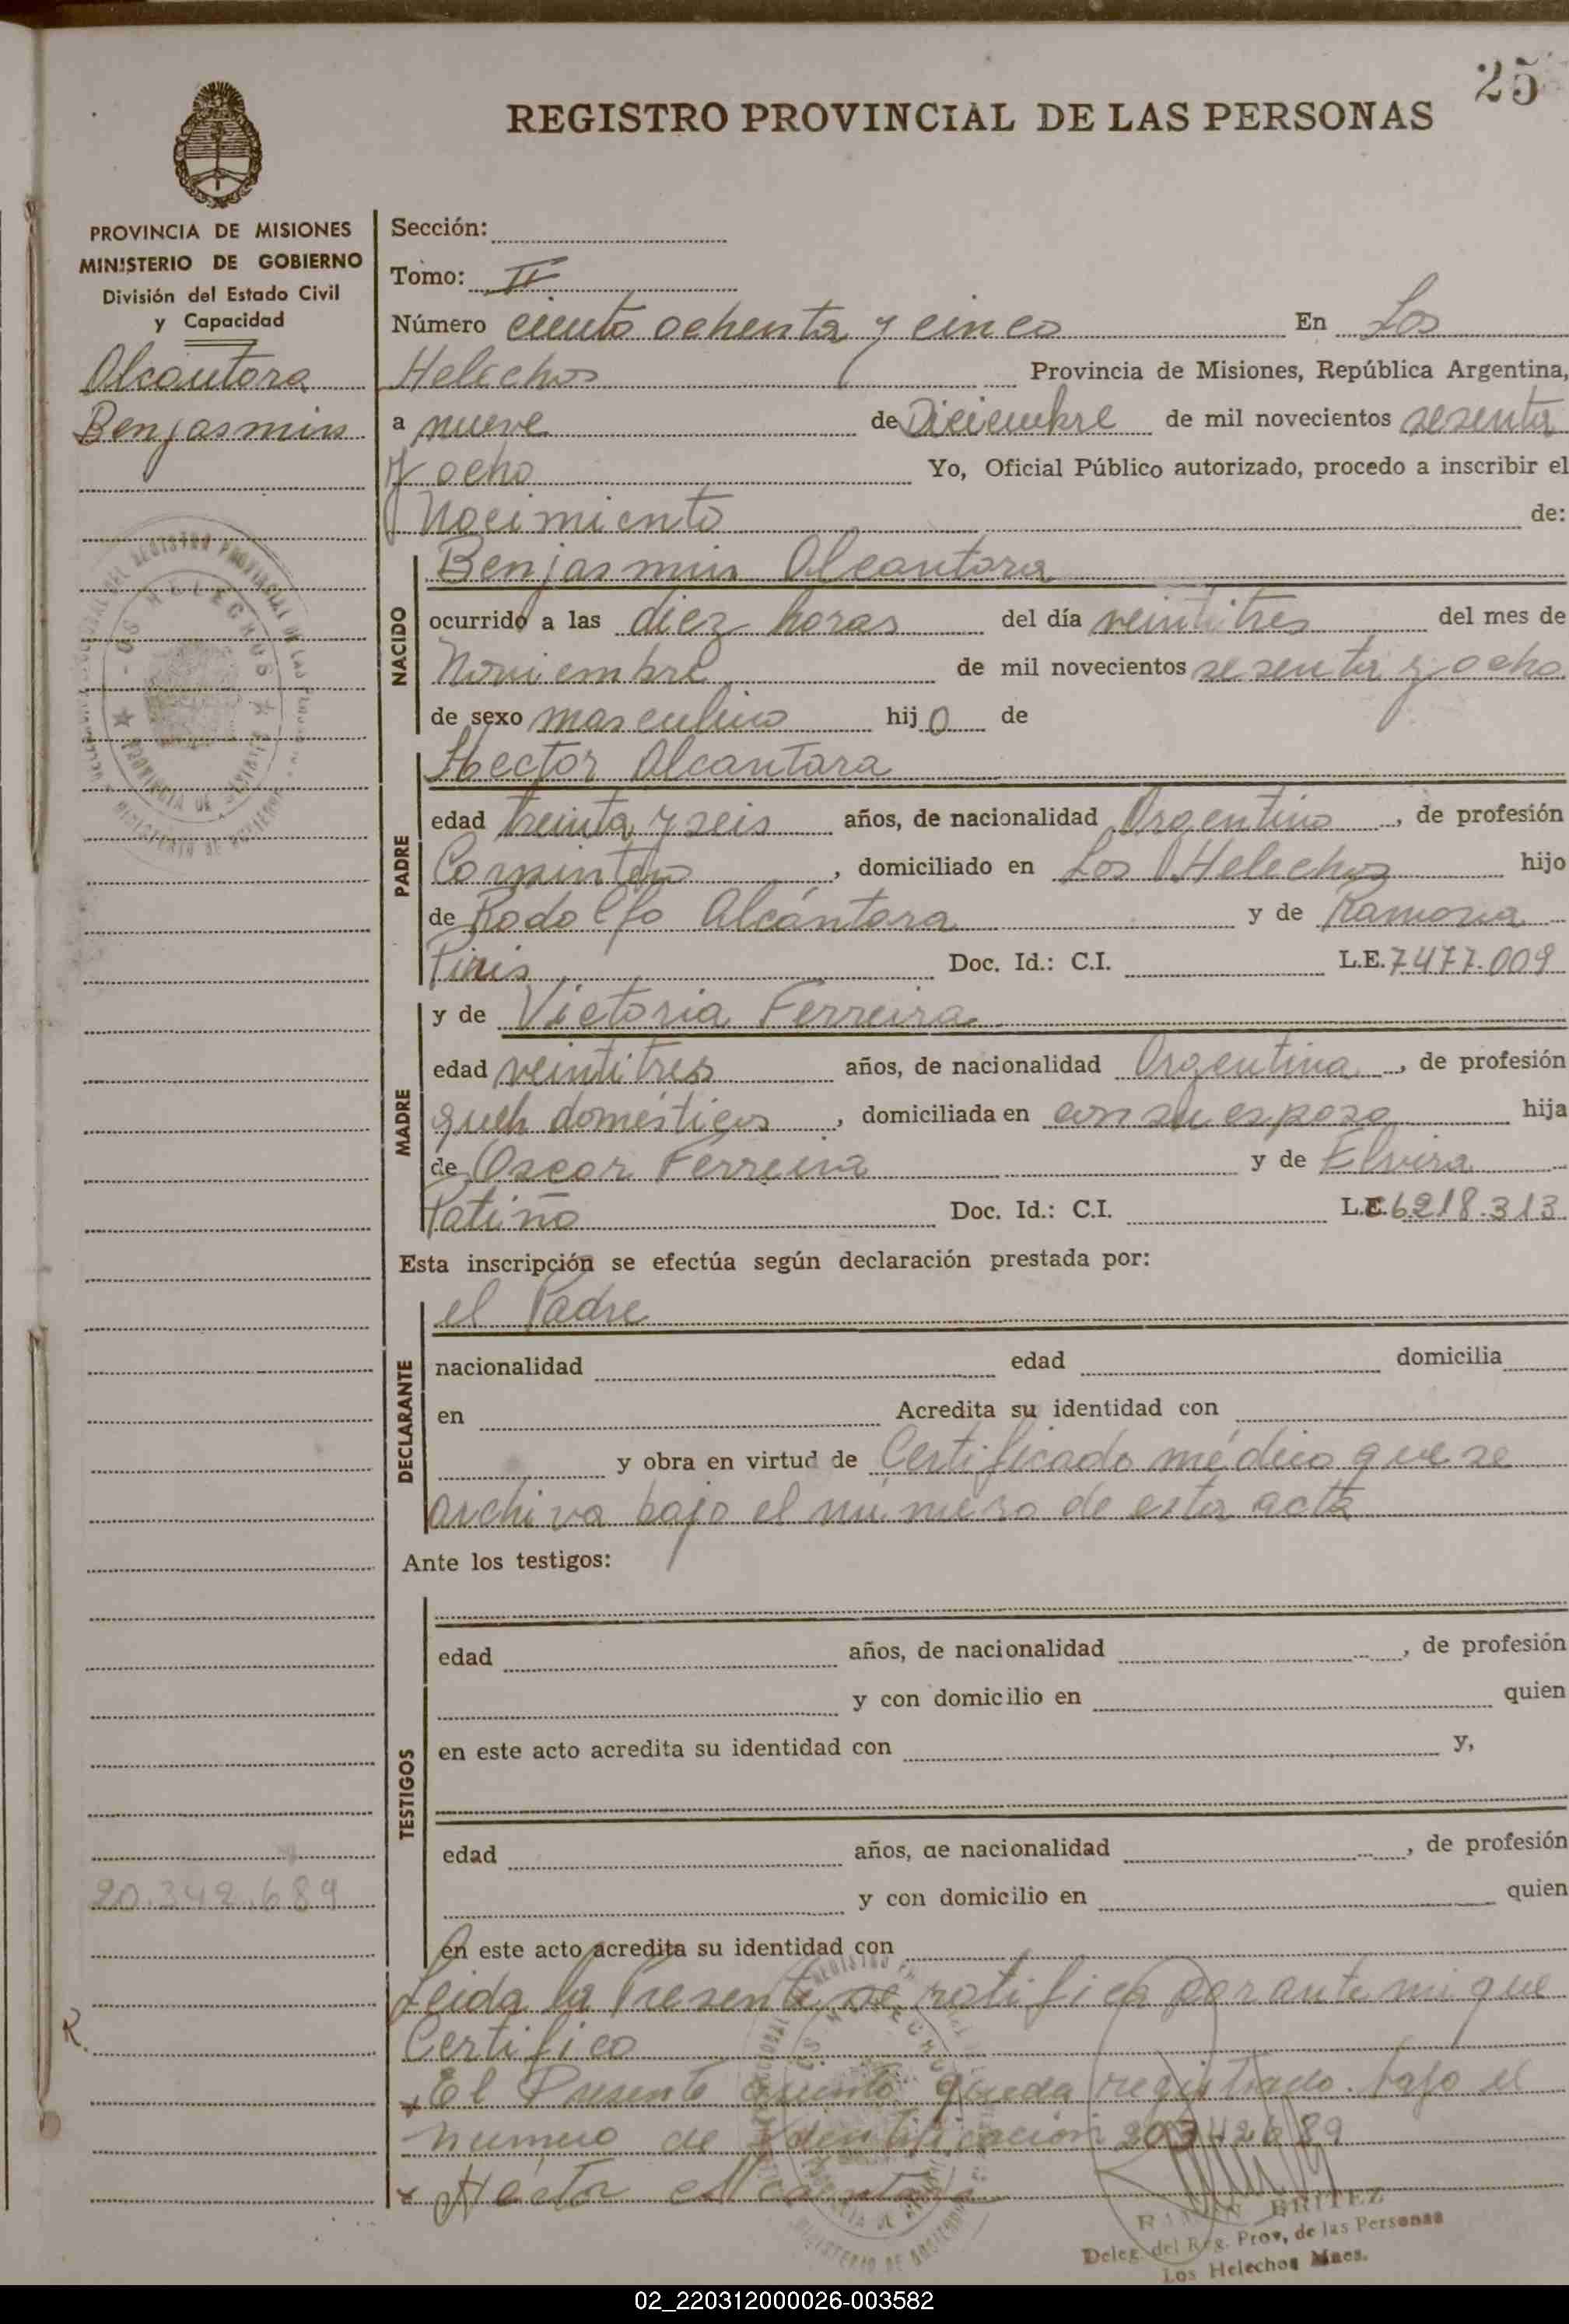 25
REGISTRO PROVINCIAL DE LAS PERSONAS
PROVINCIA DE MISIONES
MINISTERIO DE GOBIERNO
División del Estado Civil
y Capacidad
Alcantara
Benjasmin
20.342.689
R.
Sección:
Tomo: II
Número ciento ochenta y cinco En Los
Helechos Provincia de Misiones, República Argentina,
a nueve de Diciembre de mil novecientos sesenta
y ocho Yo, Oficial Público autorizado, procedo a inscribir el
Nacimiento de:
NACIDO
Benjasmin Alcantara
ocurrido a las diez horas del día veintitres del mes de
Noviembre de mil novecientos sesenta y ocho
de sexo masculino hijo de
PADRE
Hector Alcantara
edad treinta y seis años, de nacionalidad Argentino, de profesión
Carpintero, domiciliado en Los Helechos hijo
de Rodolfo Alcántara y de Ramona
Piris Doc. Id.: C.I. L.E. 7477.009
MADRE
y de Victoria Ferreira
edad veintitres años, de nacionalidad Argentina, de profesión
queh domésticos, domiciliada en con su esposo hija
de Oscar Ferreira y de Elvira
Patiño Doc. Id.: C.I. L.C. 6.218.313
Esta inscripción se efectúa según declaración prestada por:
DECLARANTE
el Padre
nacionalidad edad domicilia
en Acredita su identidad con
y obra en virtud de Certificado médico que se
archiva bajo el número de esta acta
Ante los testigos:
TESTIGOS
edad años, de nacionalidad , de profesión
y con domicilio en quien
en este acto acredita su identidad con y,
edad años, de nacionalidad , de profesión
y con domicilio en quien
en este acto acredita su identidad con
Leida la Presente se ratifica por ante mi que
Certifico
El Presente asiento queda registrado bajo el
numero de Identificación 20342689
x Hector Alcantara
RAMON BRITEZ
Deleg. del Reg. Prov. de las Personas
Los Helechos Mnes.
02_220312000026-003582